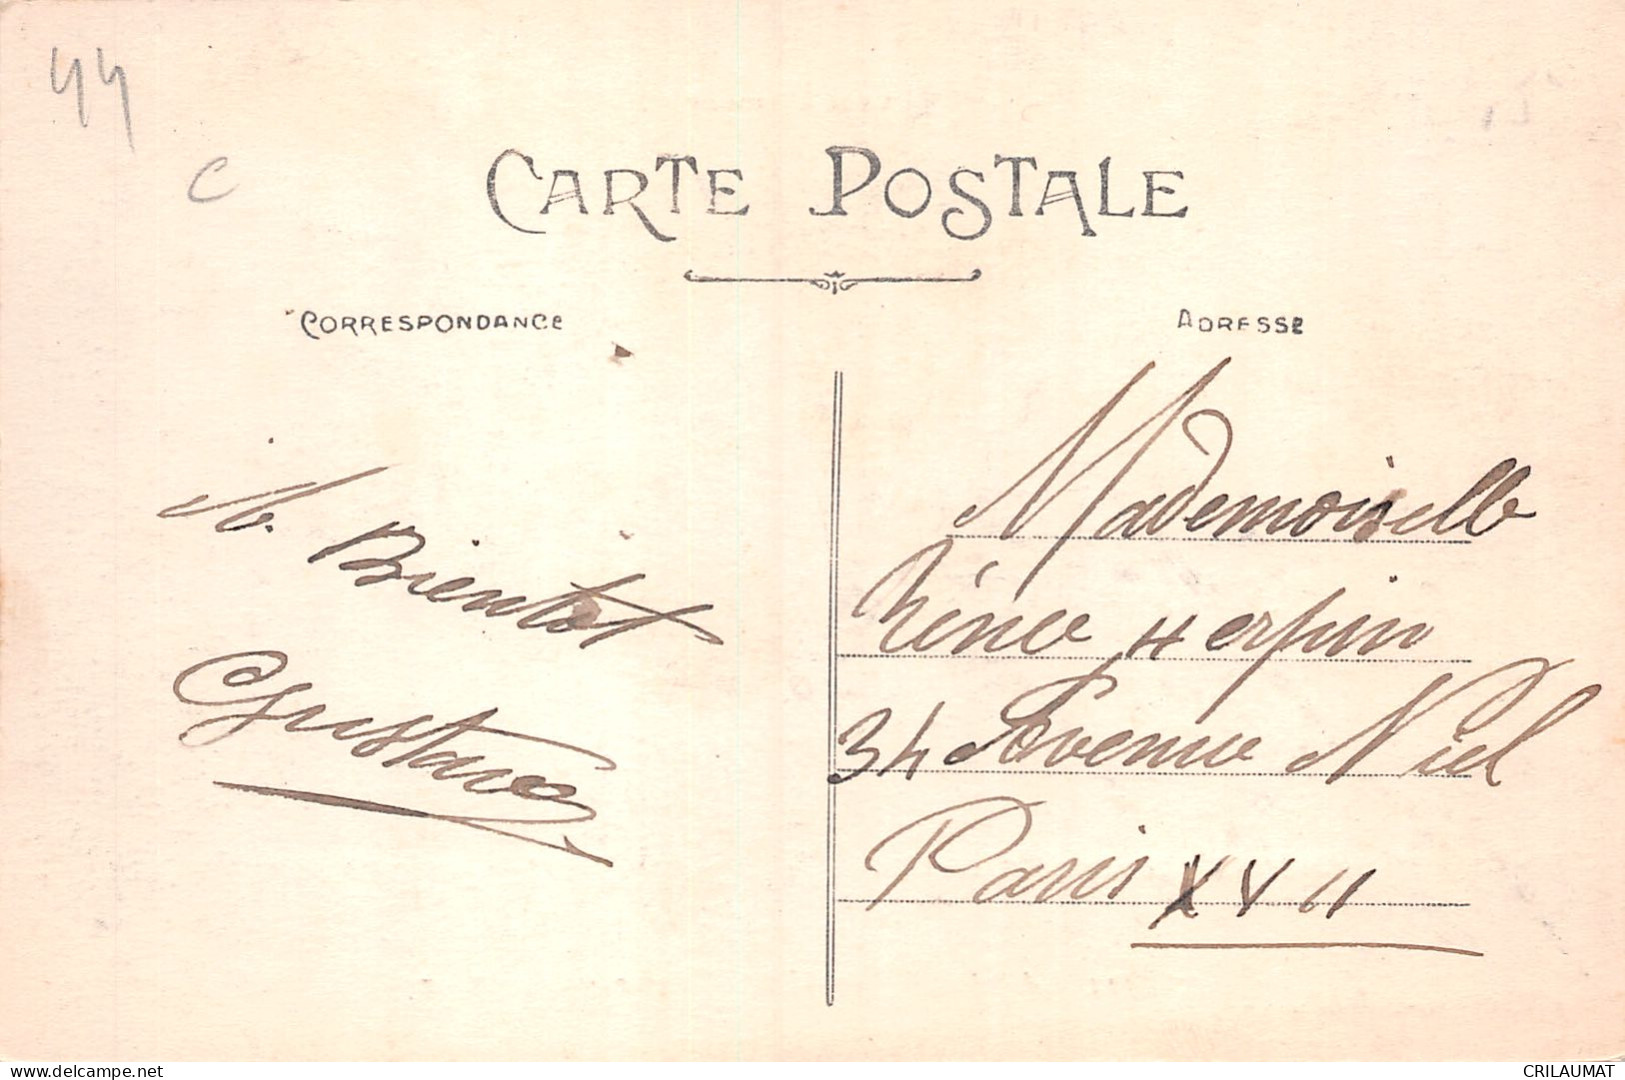 44
C
CARTE POSTALE
CORRESPONDANCE
ADRESSE
A. Bientot
Gustave
Mademoiselle
Rénée Herpin
34 Avenue Niel
Paris XVII
www.delcampe.net
CRILAUMAT